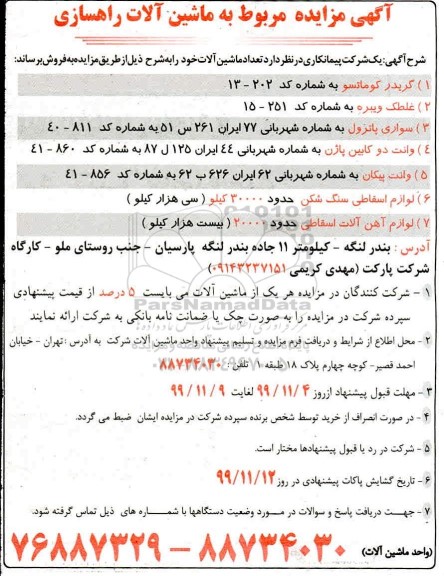 آگهی مزایده مربوط به ماشین آلات راهسازی
شرح آگهی: یک شرکت پیمانکاری در نظر دارد تعداد ماشین آلات خود را به شرح ذیل از طریق مزایده به فروش برساند:
۱ ) گریدر کوماتسو به شماره کد ۲۰۲ - ۱۳
۲ ) غلطک ویبره به شماره کد ۲۵۱ - ۱۵
۳ ) سواری پاترول به شماره شهربانی ۷۷ ایران ۲۶۱ س ۵۱ به شماره کد ۸۱۱ - ۴۰
۴ ) وانت دو کابین پاژن به شماره شهربانی ۴۴ ایران ۱۲۵ ل ۸۷ به شماره کد ۸۶۰ - ۴۱
۵ ) وانت پیکان به شماره شهربانی ۶۲ ایران ۶۲۶ ب ۶۲ به شماره کد ۸۵۶ - ۴۱
۶ ) لوازم اسقاطی سنگ شکن حدود ۳۰۰۰۰ کیلو ( سی هزار کیلو )
۷ ) لوازم آهن آلات اسقاطی حدود ۲۰۰۰۰ ( بیست هزار کیلو )
آدرس : بندر لنگه - کیلومتر ۱۱ جاده بندر لنگه پارسیان - جنب روستای ملو - کارگاه
شرکت پارکت (مهدی کریمی ۰۹۱۴۳۲۳۷۱۵۱)
۱ - شرکت کنندگان در مزایده هر یک از ماشین آلات می بایست ۵ درصد از قیمت پیشنهادی
سپرده شرکت در مزایده را به صورت چک یا ضمانت نامه بانکی به شرکت ارائه نمایند
۲ - محل اطلاع از شرایط و دریافت فرم مزایده و تسلیم پیشنهاد واحد ماشین آلات شرکت به آدرس : تهران - خیابان
احمد قصیر- کوچه چهارم پلاک ۱۸ طبقه ۱ تلفن : ۸۸۷۳۴۰۳۰
۳ - مهلت قبول پیشنهاد از روز ۹۹/۱۱/۴ لغایت ۹۹/۱۱/۹
۴ - در صورت انصراف از خرید توسط شخص برنده سپرده شرکت در مزایده ایشان ضبط می گردد.
۵ - شرکت در رد یا قبول پیشنهادها مختار است.
۶ - تاریخ گشایش پاکات پیشنهادی در روز ۹۹/۱۱/۱۲
۷ - جهت دریافت پاسخ و سوالات در مورد وضعیت دستگاهها با شماره های ذیل تماس گرفته شود.
(واحد ماشین آلات) ۸۸۷۳۴۰۳۰ - ۷۶۸۸۷۳۲۹
ParsNamadData